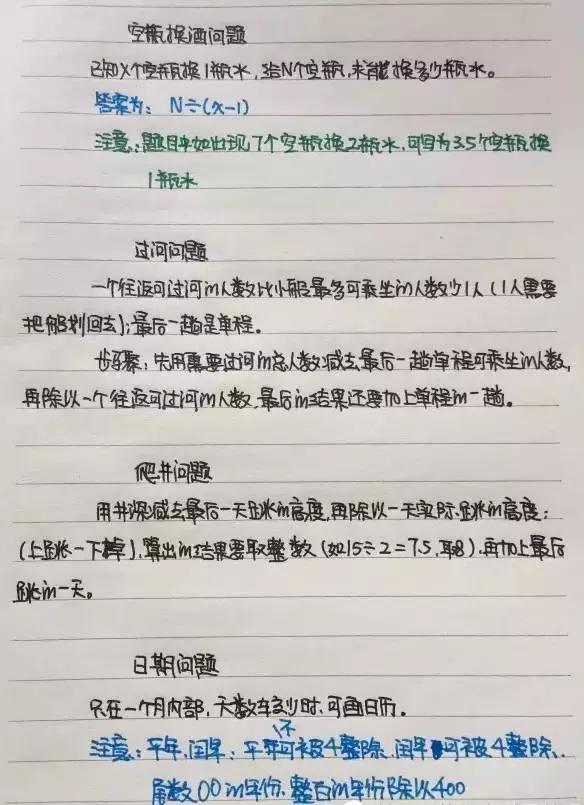 空瓶换酒问题
已知X个空瓶换1瓶水,给N个空瓶,求能换多少瓶水。
答案为: N÷(x-1)
注意:题目中如出现7个空瓶换2瓶水,可写为3.5个空瓶换
1瓶水
过河问题
一个往返可过河的人数比小船最多可乘坐的人数少1人(1人需要
把船划回去);最后一趟是单程。
步骤:先用需要过河的总人数减去最后一趟单程可乘坐的人数,
再除以一个往返可过河的人数,最后的结果还要加上单程的一趟。
爬井问题
用井深减去最后一天跳的高度,再除以一天实际跳的高度;
(上跳-下掉),算出的结果要取整数(如15÷2=7.5,取8),再加上最后
跳的一天。
日期问题
只在一个月内部,天数较少时,可画日历。
注意:平年,闰年:平年不可被4整除,闰年可被4整除,
尾数00的年份,整百的年份除以400